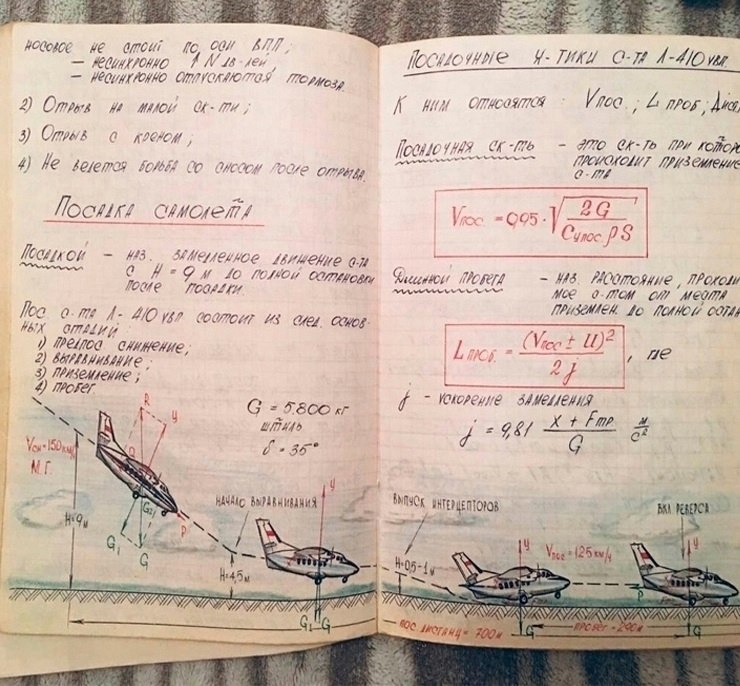 носовое не стоит по оси ВПП;
— несинхронно ↑ N дв-лей
— несинхронно отпускаются тормоза.
2) Отрыв на малой ск-ти;
3) Отрыв с креном;
4) Не ведется борьба со сносом после отрыва.
Посадка самолета
Посадкой — наз. замедленное движение с-та
с H = 9 м до полной остановки
после посадки.
Пос с-та Л-410 увп состоит из след. основ-
ных стадий:
1) предпос снижение;
2) выравнивание;
3) приземление;
4) пробег
G = 5.800 кг
штиль
δ = 35°
R
У
Vсн=150 км/ч
М.Г.
Q
H=9м
G2
G1
G
P
начало выравнивания
У
H=4,5м
G
Посадочные х-тики с-та Л-410 увп
К ним относятся: Vпос.; L проб;
Посадочная ск-ть — это ск-ть при которо
происходит приземление
с-та
Vпос. = 0,95 · √ 2G / Cупос. ρ S
Длинной пробега — наз. расстояние, проходи
мое с-том от места
приземлен. до полной остан
L проб. = (Vпос ± U)² / 2 j , где
j - ускорение замедления
j = 9,81 X + Fтр. / G м/с²
выпуск интерцепторов
вкл реверса
H=0,5-1м
У
Vпос = 125 км/ч
У
P
G
G
пос. дистанц = 700м
пробег = 290м